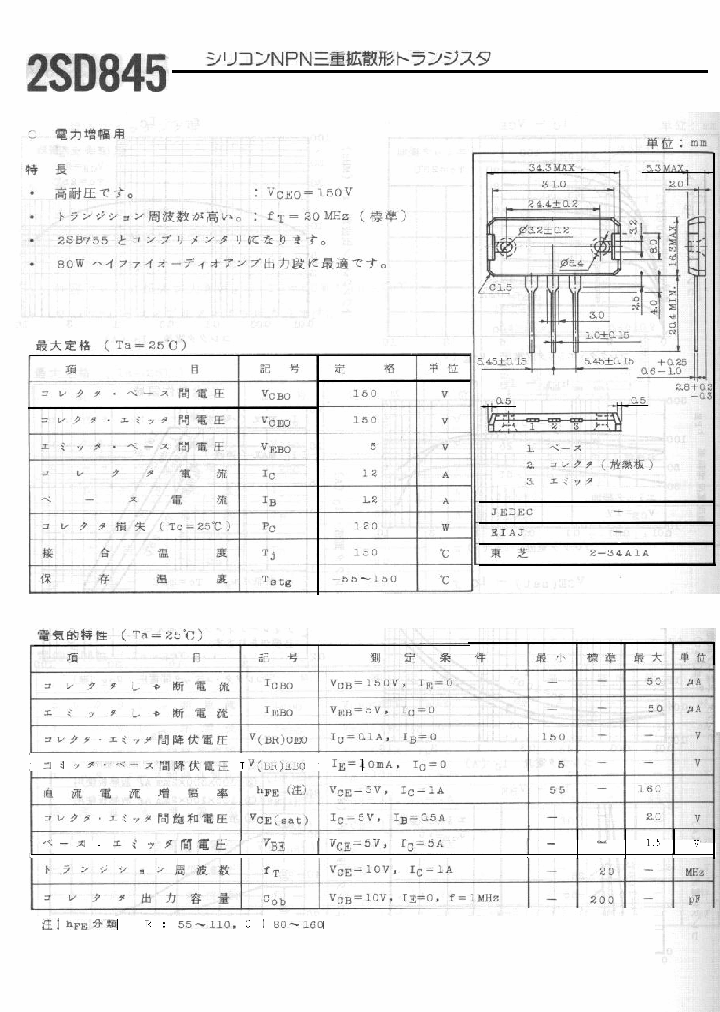 2SD845
シリコンNPN三重拡散形トランジスタ
○ 電力増幅用
単位：mm
特 長
・ 高耐圧です。 ：VCEO＝150V
・ トランジション周波数が高い。：fT＝20MHz（標準）
・ 2SB755とコンプリメンタリになります。
・ 80Wハイファイオーディオアンプ出力段に最適です。
34.3MAX. 5.3MAX.
31.0 2.0
24.4±0.2
Ø3.2±0.2 3.2 8.0 16.3MAX.
Ø6.4
C1.5 2.5 4.0 20.4 MIN.
3.0
1.0±0.15
5.45±0.15 5.45±0.15 +0.25
0.6-1.0
2.8+0.2
-0.3
0.5 0.5
1 2 3
1. ベース
2. コレクタ（放熱板）
3. エミッタ
JEDEC —
EIAJ —
東芝 2-34A1A
最大定格（Ta＝25℃）
項 目 記号 定 格 単位
コレクタ・ベース間電圧 VCBO 150 V
コレクタ・エミッタ間電圧 VCEO 150 V
エミッタ・ベース間電圧 VEBO 5 V
コレクタ電流 IC 12 A
ベース電流 IB 1.2 A
コレクタ損失（Tc＝25℃） PC 120 W
接合温度 Tj 150 ℃
保存温度 Tstg -55～150 ℃
電気的特性（Ta＝25℃）
項 目 記号 測定条件 最小 標準 最大 単位
コレクタしゃ断電流 ICBO VCB＝150V，IE＝0 — — 50 μA
エミッタしゃ断電流 IEBO VEB＝5V，IC＝0 — — 50 μA
コレクタ・エミッタ間降伏電圧 V(BR)CEO IC＝0.1A，IB＝0 150 — — V
エミッタ・ベース間降伏電圧 V(BR)EBO IE＝10mA，IC＝0 5 — — V
直流電流増幅率 hFE（注） VCE＝5V，IC＝1A 55 — 160
コレクタ・エミッタ間飽和電圧 VCE(sat) IC＝5V，IB＝0.5A — — 2.0 V
ベース・エミッタ間電圧 VBE VCE＝5V，IC＝5A — — 1.5 V
トランジション周波数 fT VCE＝10V，IC＝1A — 20 — MHz
コレクタ出力容量 Cob VCB＝10V，IE＝0，f＝1MHz — 200 — pF
注） hFE分類 R：55～110，O：80～160